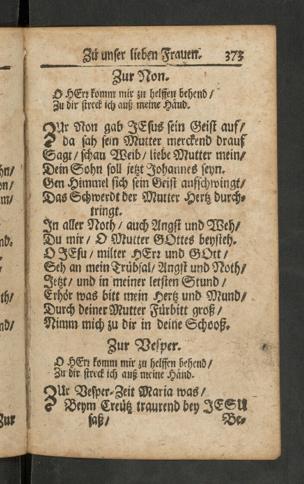 Zu unser lieben Frauen. 373
Zur Non.
O HErr komm mir zu helffen behend /
Zu dir streck ich auß meine Händ.
ZUr Non gab JEsus sein Geist auf /
da sah sein Mutter merckend drauf
Sagt / schau Weib / liebe Mutter mein /
Dein Sohn soll jetzt Johannes seyn.
Gen Himmel sich sein Geist aufschwingt /
Das Schwerdt der Mutter Hertz durch-
tringt.
In aller Noth / auch Angst und Weh /
Du mir / O Mutter GOttes beysteh.
O JEsu / milter HErr und GOtt /
Seh an mein Trübsal / Angst und Noth /
Jetzt / und in meiner letsten Stund /
Erhör was bitt mein Hertz und Mund /
Durch deiner Mutter Fürbitt groß /
Nimm mich zu dir in deine Schooß.
Zur Vesper.
O HErr komm mir zu helffen behend /
Zu dir streck ich auß meine Händ.
ZUr Vesper-Zeit Maria was /
Beym Creütz traurend bey JESU
saß / Be-
hn /
on /
nd.
th /
nd /
Zur